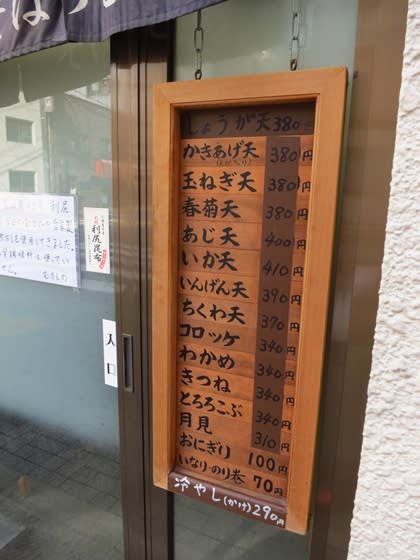 しょうが天 380円
かきあげ天 380円
(えび入り)
玉ねぎ天 380円
春菊天 380円
あじ天 400円
いか天 410円
いんげん天 390円
ちくわ天 370円
コロッケ 340円
わかめ 340円
きつね 340円
とろろこぶ 340円
月見 310円
おにぎり 100円
いなり・のり巻 70円
冷やし(かけ)290円
利尻昆布
入口